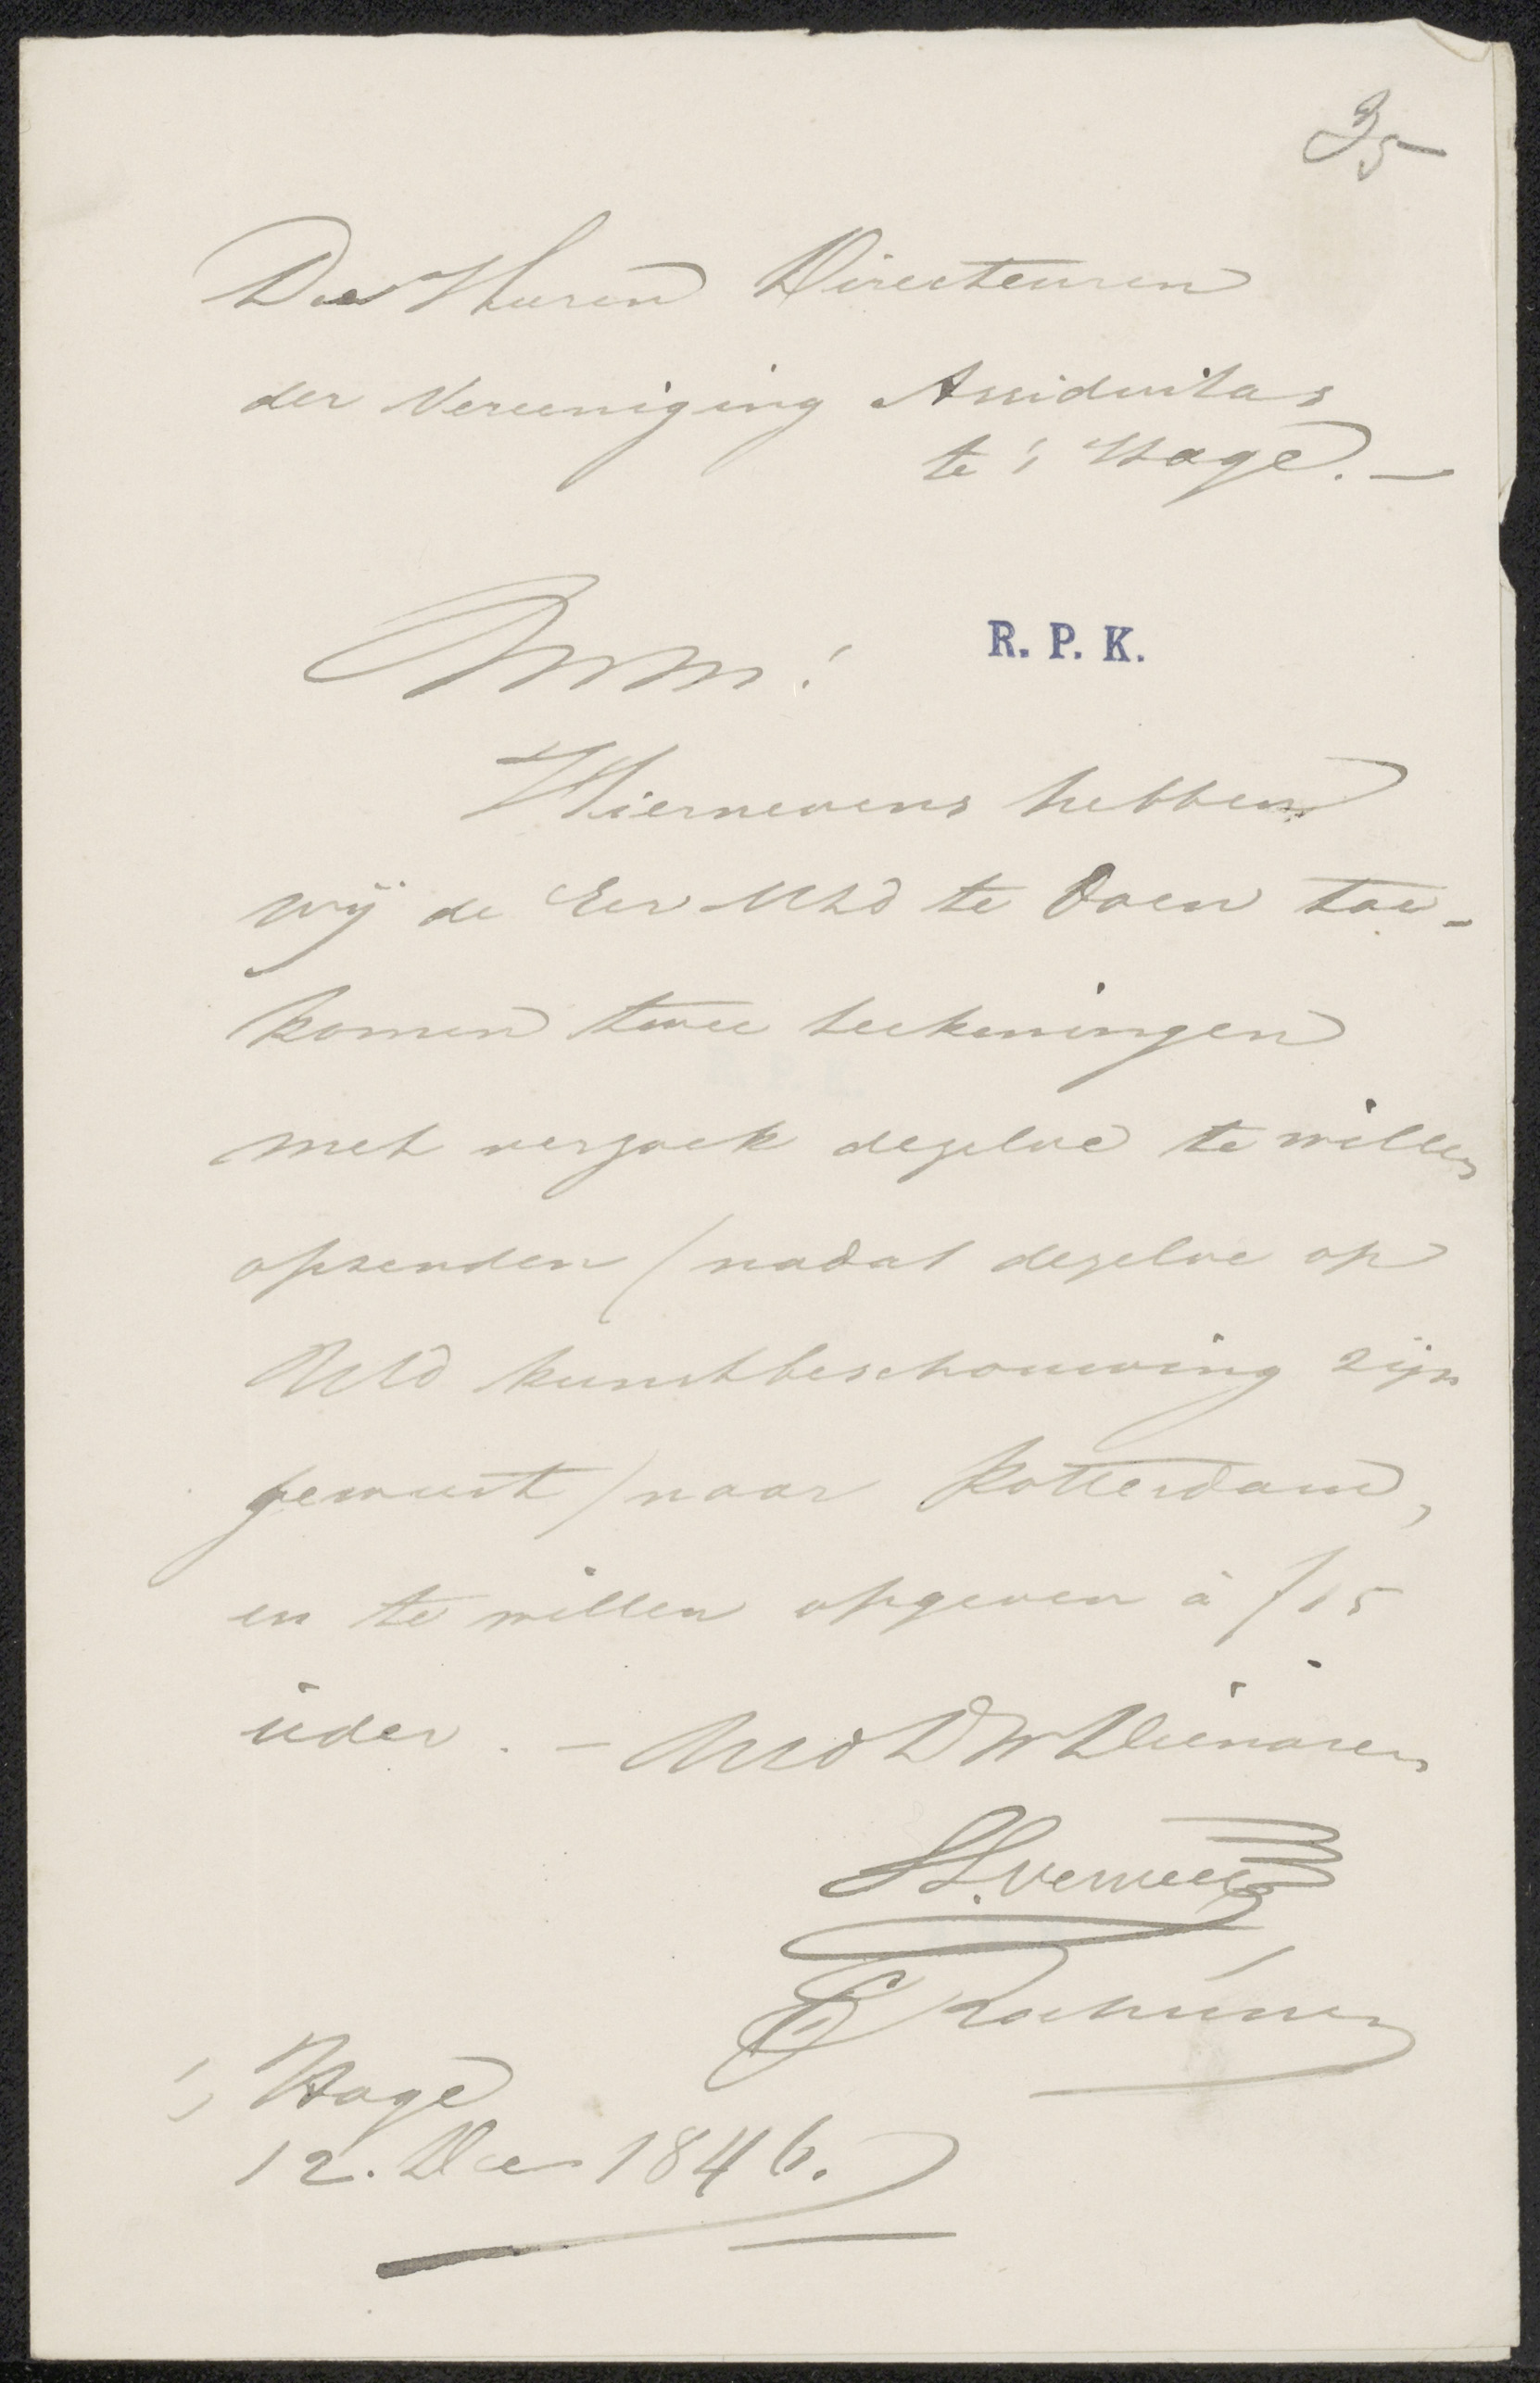 35
De Heeren Directeuren
der Vereeniging Assiduitas
te 's Hage. —
R. P. K.
Hiernevens hebben
wij de Eer UEd te doen toe-
komen twee teekeningen
met verzoek dezelve te willen
opzenden / nadat dezelve op
UEd kunstbeschouwing zijn
geweest / naar Rotterdam,
en te willen opgeven à ƒ 15
ieder. — UEd DW Dienaren
S L. Verveer
Rochussen
's Hage
12. Dec 1846.